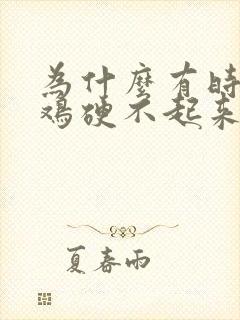 為什麼有時
鸡硬不起来
夏春雨